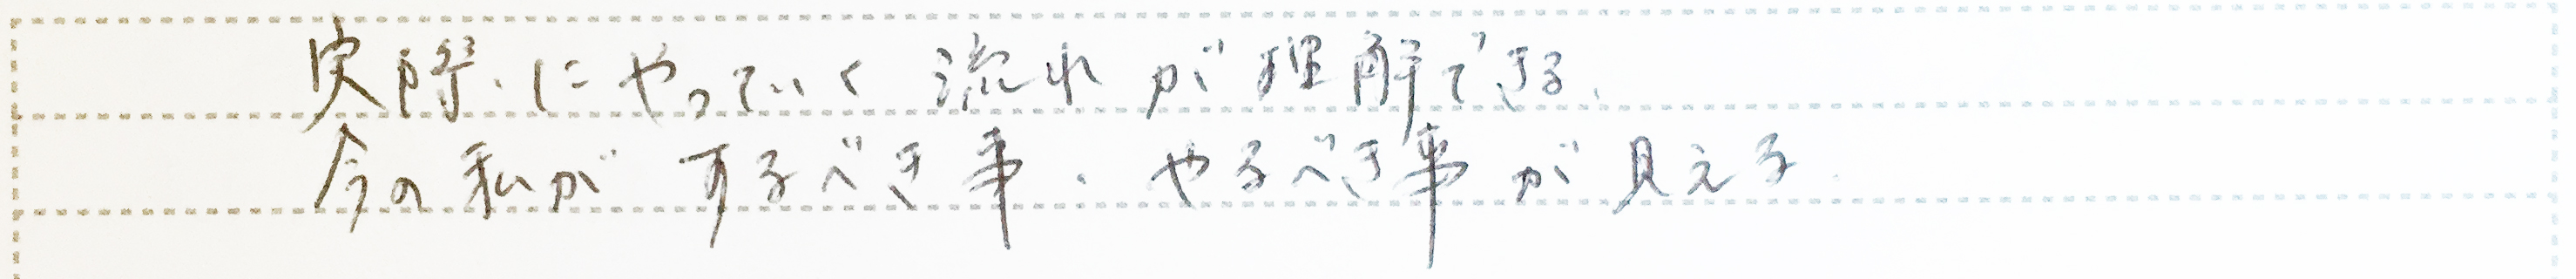 実際にやっていく流れが理解できる。
今の私がするべき事、やるべき事が見える。